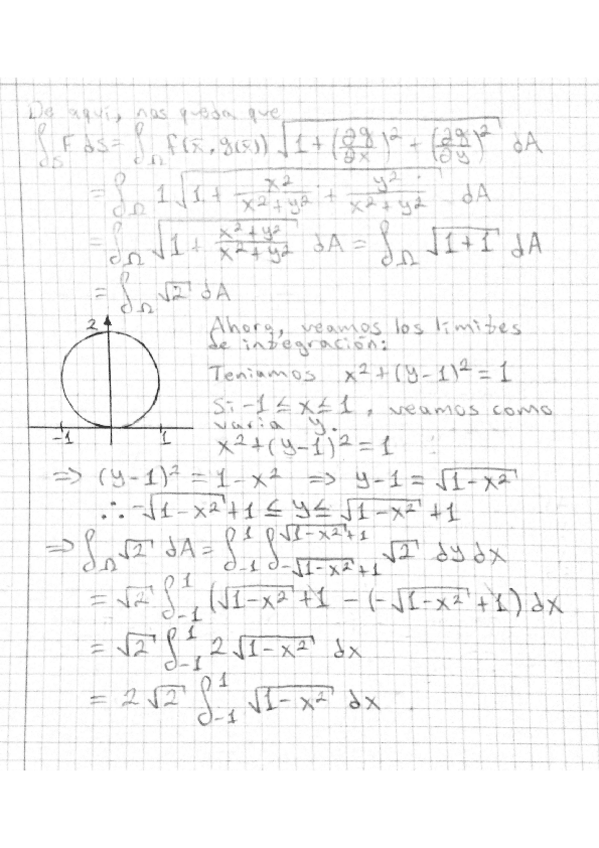 De aquí, nos queda que
∫_S F dS = ∫_Ω f(x̄, g(x̄)) √(1 + (∂g/∂x)² + (∂g/∂y)²) dA
= ∫_Ω 1 √(1 + x²/(x²+y²) + y²/(x²+y²)) dA
= ∫_Ω √(1 + (x²+y²)/(x²+y²)) dA = ∫_Ω √(1+1) dA
= ∫_Ω √2 dA
2
-1
1
Ahora, veamos los límites
de integración:
Teniamos x² + (y-1)² = 1
Si -1 ≤ x ≤ 1, veamos como
varia y.
x² + (y-1)² = 1
⇒ (y-1)² = 1-x² ⇒ y-1 = √(1-x²)
∴ -√(1-x²) + 1 ≤ y ≤ √(1-x²) + 1
⇒ ∫_Ω √2 dA = ∫_{-1}^{1} ∫_{-√(1-x²)+1}^{√(1-x²)+1} √2 dy dx
= √2 ∫_{-1}^{1} (√(1-x²) + 1 - (-√(1-x²) + 1) dx
= √2 ∫_{-1}^{1} 2 √(1-x²) dx
= 2 √2 ∫_{-1}^{1} √(1-x²) dx